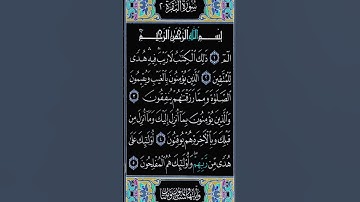 سورة البقرة ٢
بسم الله الرحمن الرحيم
الٓمٓ ۝١ ذَٰلِكَ الْكِتَٰبُ لَا رَيْبَ فِيهِ هُدًى
لِّلْمُتَّقِينَ ۝٢ الَّذِينَ يُؤْمِنُونَ بِالْغَيْبِ وَيُقِيمُونَ
الصَّلَوٰةَ وَمِمَّا رَزَقْنَٰهُمْ يُنفِقُونَ ۝٣
وَالَّذِينَ يُؤْمِنُونَ بِمَا أُنزِلَ إِلَيْكَ وَمَا أُنزِلَ مِن
قَبْلِكَ وَبِالْآخِرَةِ هُمْ يُوقِنُونَ ۝٤ أُولَٰئِكَ عَلَىٰ
هُدًى مِّن رَّبِّهِمْ وَأُولَٰئِكَ هُمُ الْمُفْلِحُونَ ۝٥